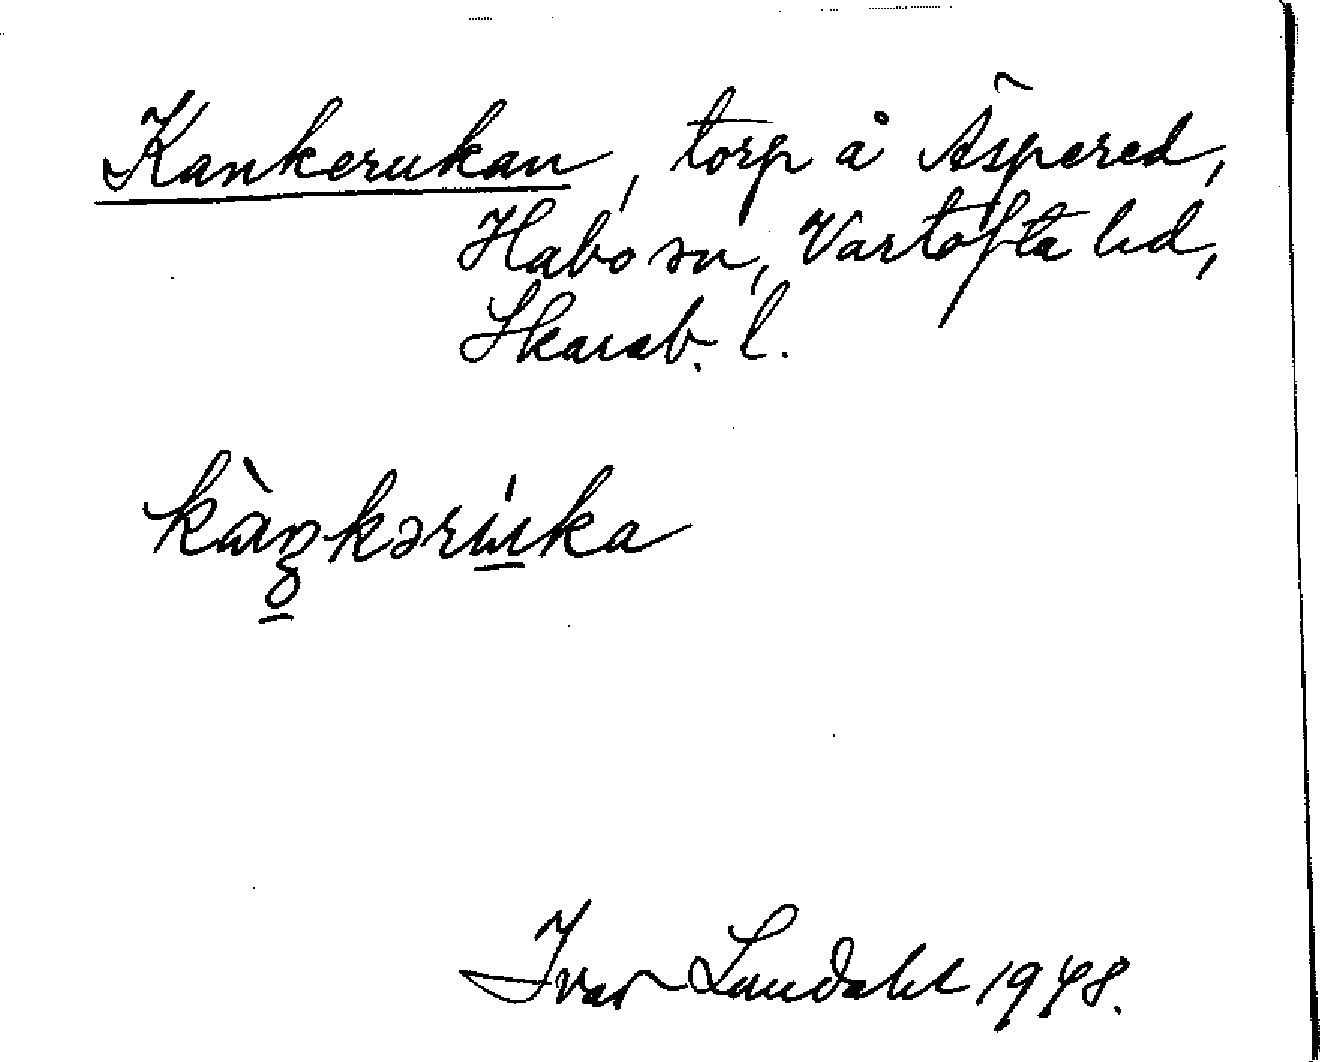 Kankerukan, torp å Äspered,
Habo sn, Vartofta hd,
Skarab. l.
kàŋkərúka
Ivar Lundahl 1948.